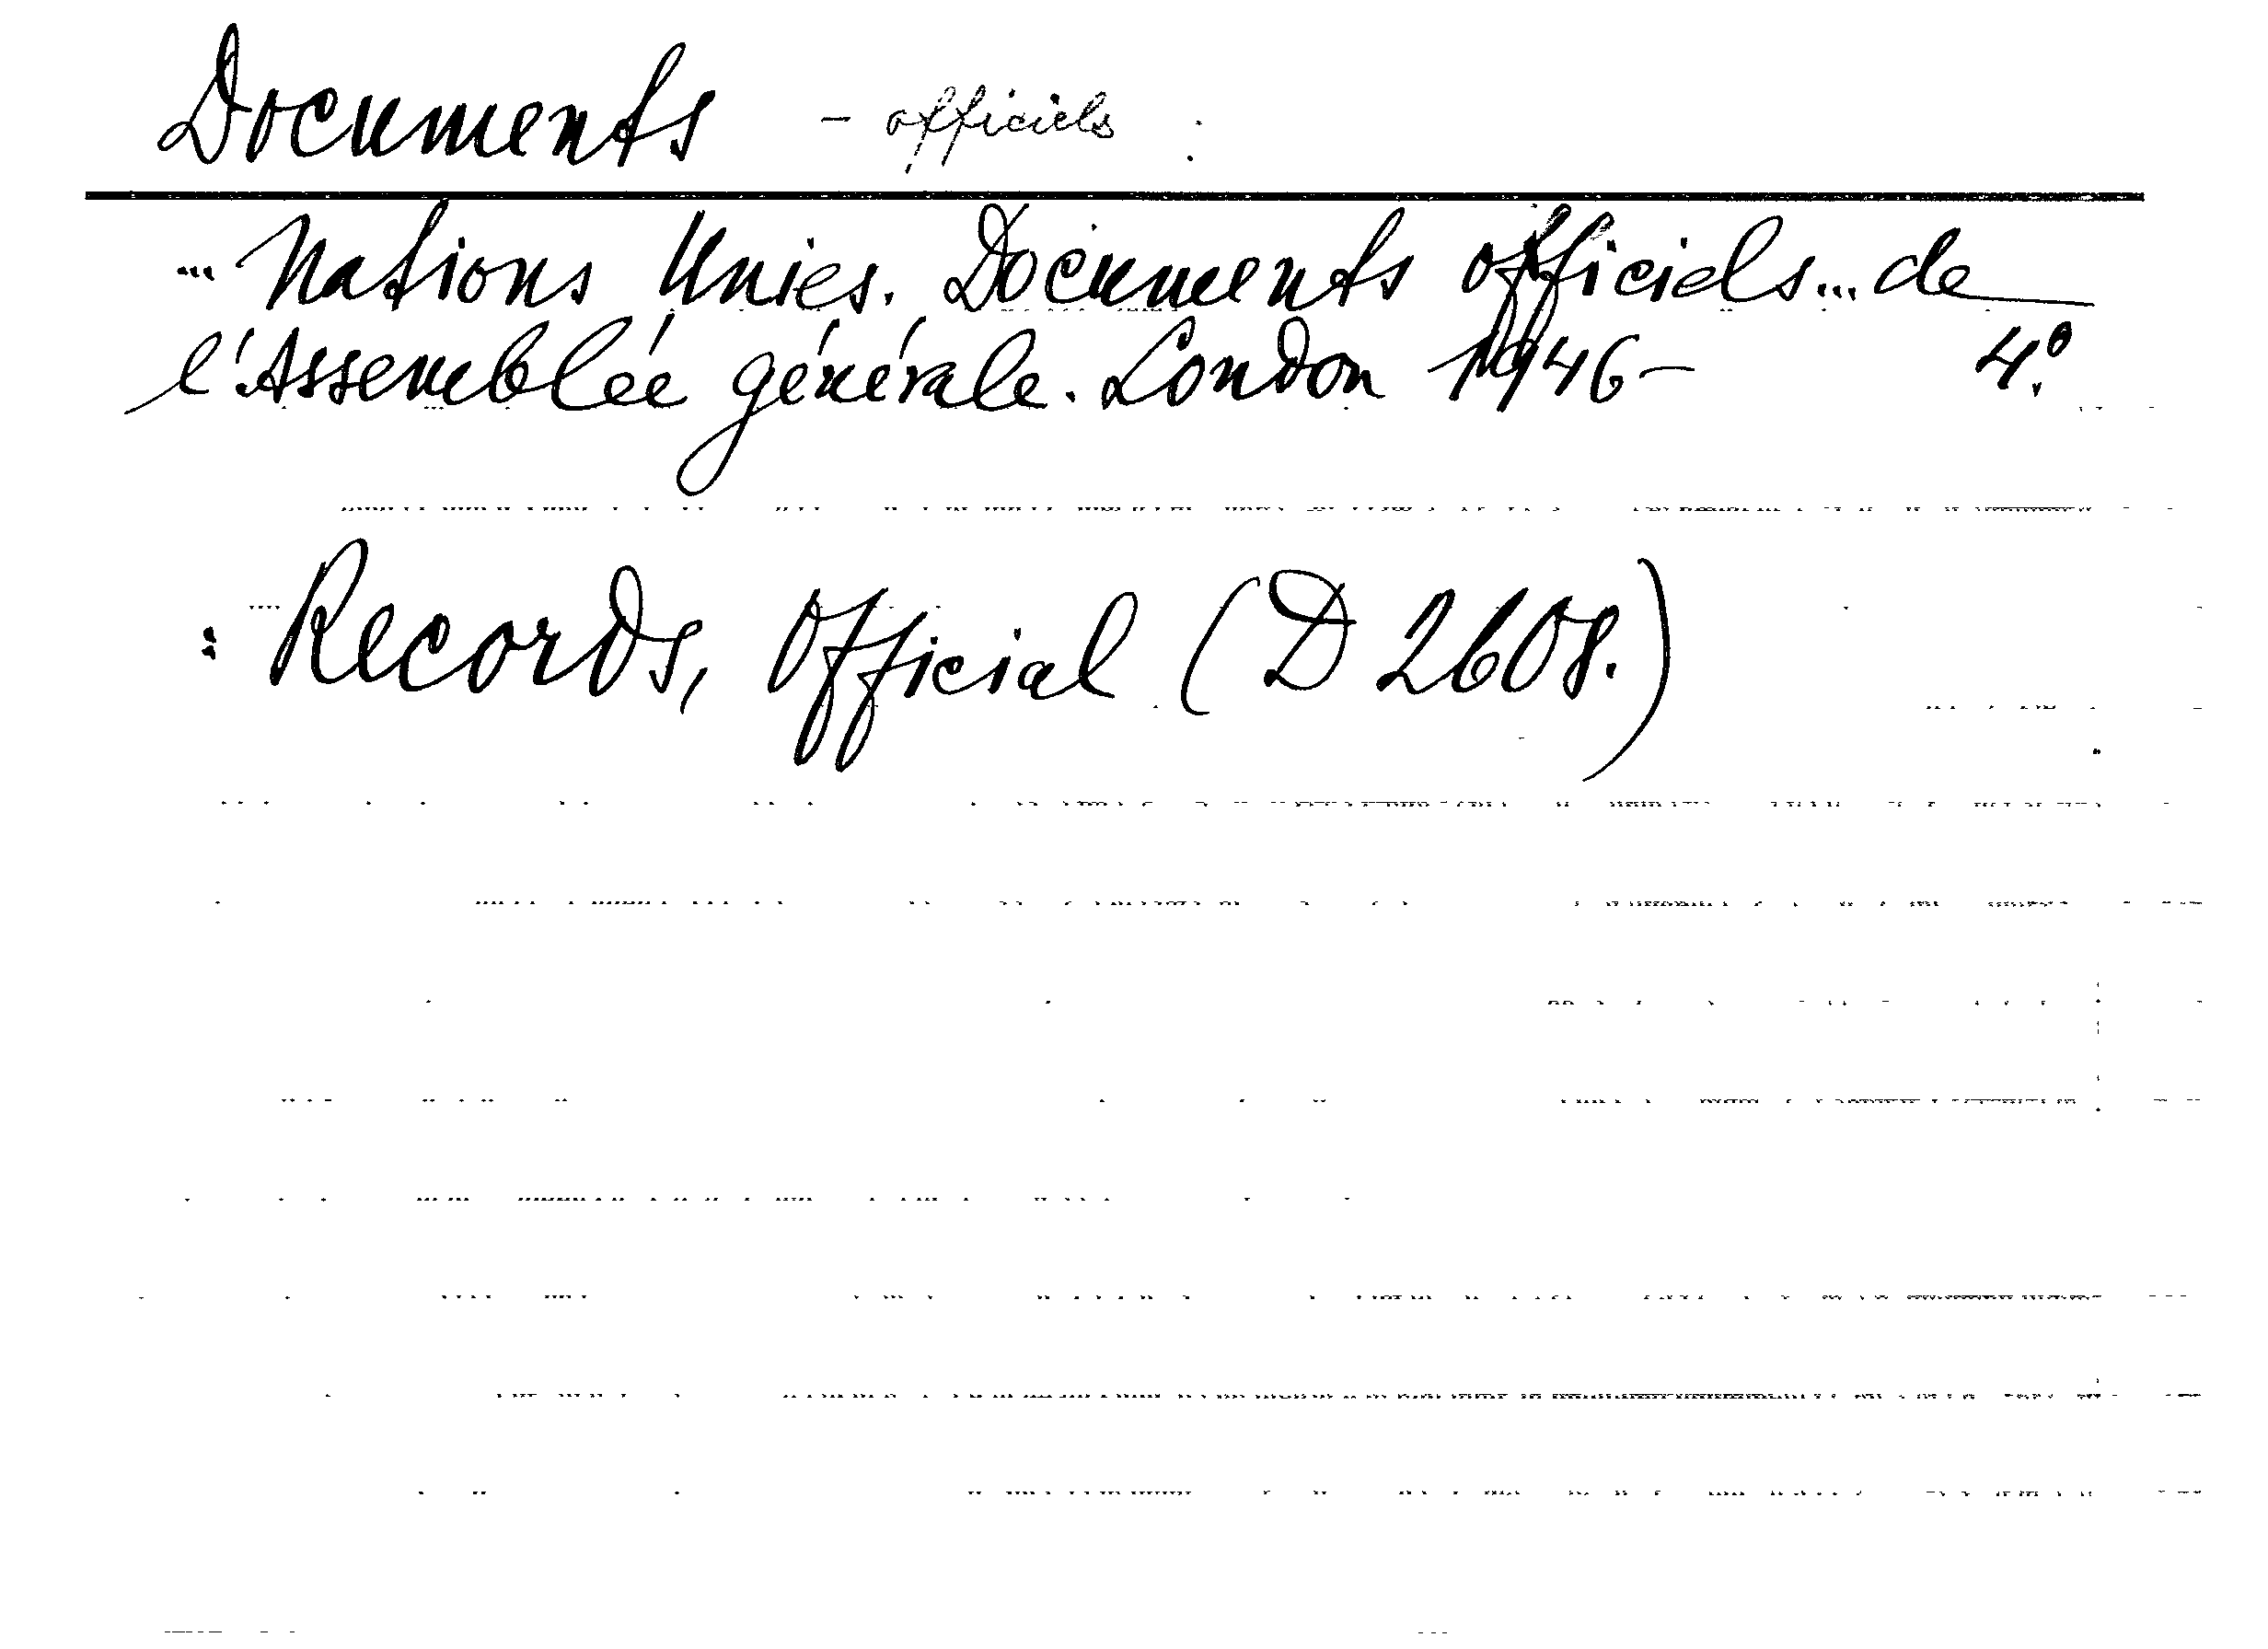 Documents - officiels :
... Nations Unies. Documents officiels... de
l'Assemblée générale. London 1946- 4°.
: Records, Official (D 2608.)